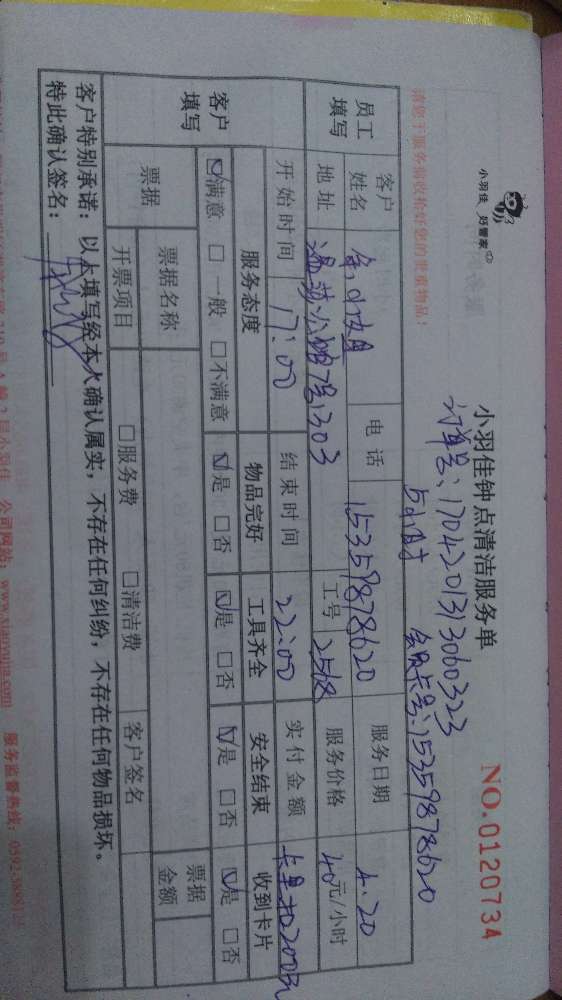 小羽佳 好管家
小羽佳钟点清洁服务单
NO.0120734
订单号:17042013130603​23
5小时
会员卡号:15359878620
请您于服务前收拾好您的贵重物品!
员工填写
客户姓名 余小姐 电话 15359878620 服务日期 4.20
地址 7号1303 工号 服务价格 40元/小时
开始时间 17:00 结束时间 22:00 实付金额 卡里扣200元
客户填写
服务态度 物品完好 工具齐全 安全结束 收到卡片
☑满意 □一般 □不满意 ☑是 □否 ☑是 □否 ☑是 □否 ☑是 □否
票据
票据名称 票据金额
开票项目 □服务费 □清洁费 客户签名
客户特别承诺:以上填写经本人确认属实,不存在任何纠纷,不存在任何物品损坏。
特此确认签名:
公司网站:www.xiaoyujia.com 服务监督热线: